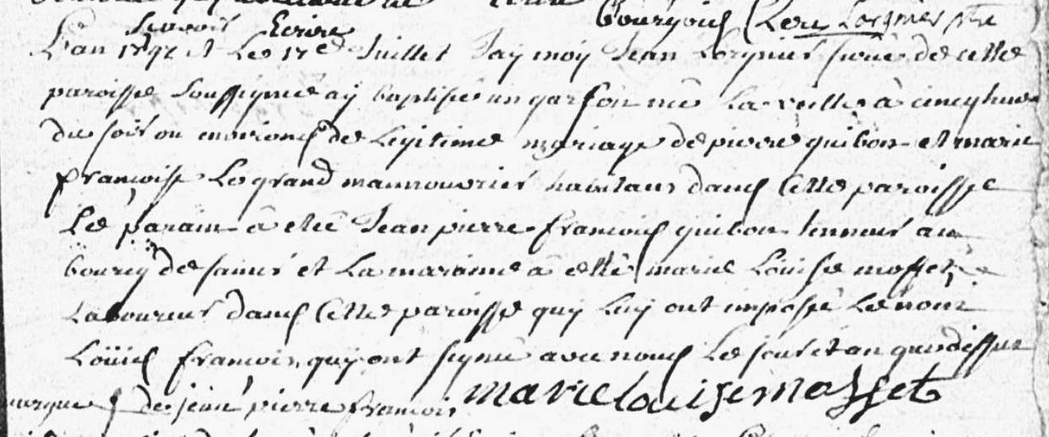 Scavoir Ecrire bourgois Lere Lorgnier ptre
L'an 1792 et Le 17e Juillet Jay moy Jean Lorgnier Curé de cette
paroisse Soussigné ay baptisé un garson né La veille a cinq heures
du soir ou environs de Legitime mariage de pierre quibon et marie
francoise Legrand mannouvrier habitans dans Cette paroisse
Le parain â etté Jean pierre francois quibon tenneur au
bourcq de samer et La maraine â etté marie Louise mosset
Laboureur dans Cette paroisse quy Luy ont imposé Le nom
Loüis francois quy ont signé avec nous Les jour et an que dessus
marque de jean pierre francois marie louise masset